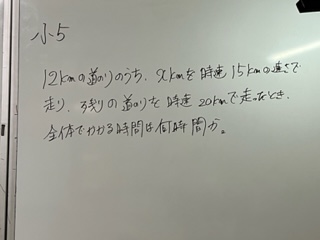 小5
12kmの道のりのうち、xkmを時速15kmの速さで
走り、残りの道のりを時速20kmで走ったとき、
全体でかかる時間は何時間か。